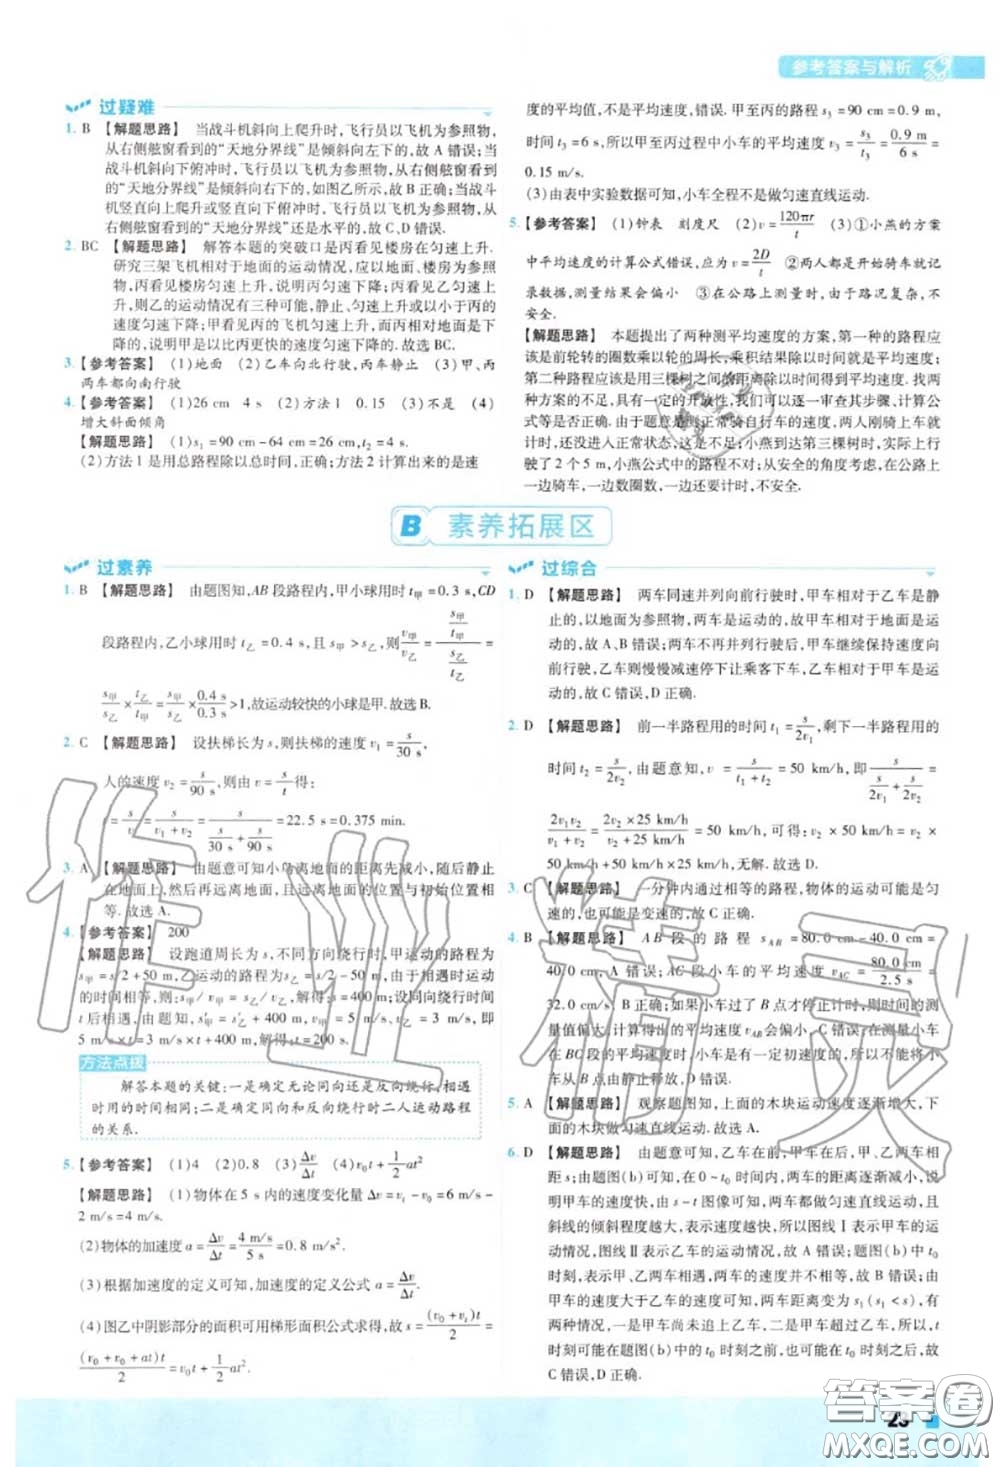 参考答案与解析
过疑难
1. B 【解题思路】 当战斗机斜向上爬升时,飞行员以飞机为参照物,
从右侧舷窗看到的“天地分界线”是倾斜向左下的,故 A 错误;当
战斗机斜向下俯冲时,飞行员以飞机为参照物,从右侧舷窗看到
的“天地分界线”是倾斜向右下的,如图乙所示,故 B 正确;当战斗
机竖直向上爬升或竖直向下俯冲时,飞行员以飞机为参照物,从
右侧舷窗看到的“天地分界线”还是水平的,故 C、D 错误.
2. BC 【解题思路】 解答本题的突破口是丙看见楼房在匀速上升.
研究三架飞机相对于地面的运动情况,应以地面、楼房为参照
物,丙看见楼房匀速上升,说明丙匀速下降;丙看见乙匀速上
升,则乙的运动情况有三种可能,静止、匀速上升或以小于丙的
速度匀速下降;甲看见丙的飞机匀速上升,而丙相对于地面匀
速下降,说明甲是以比丙更快的速度匀速下降. 故选 BC.
3. 【参考答案】 (1)地面 (2)乙车向北行驶,丙车静止 (3)甲、丙
两车都向南行驶
4. 【参考答案】 (1)26 cm 4 s (2)方法1 0.15 (3)不是 (4)
增大斜面倾角
【解题思路】 (1)s₁=90 cm-64 cm=26 cm,t₂=4 s.
(2)方法 1 是用总路程除以总时间,正确;方法 2 计算出来的是速
度的平均值,不是平均速度,错误. 甲至丙的路程 s₃=90 cm=0.9 m,
时间 t₃=6 s,所以甲至丙过程中小车的平均速度 v₃=s₃/t₃=0.9 m/6 s=
0.15 m/s.
(3)由表中实验数据可知,小车全程不是做匀速直线运动.
5. 【参考答案】 (1)钟表 刻度尺 (2)v=120πr/t (3)①小燕的方案
中平均速度的计算公式错误,应为 v=2D/t ②两人都是开始骑车就记
录数据,测量结果会偏小 ③在公路上测量时,由于路况复杂,不
安全.
【解题思路】 本题提出了两种测平均速度的方案,第一种的路程应
该是前轮转的圈数乘以轮的周长,乘积结果除以时间是平均速度;
第二种路程应该是用三棵树之间的距离除以时间得到平均速度. 找
两种方案的不足,具有一定的开放性,我们可以逐一审查其步骤、计算公
式等是否正确. 由于题意是测正常骑自行车的速度,两人刚骑上车时,
还没有进入正常状态,这是不足;小燕到达第三棵树时,实际上行
驶了 2 个 5 m,小燕公式中的路程不对;从安全的角度考虑,在公路上
一边骑车,一边数圈数,一边还要计时,不安全.
B 素养拓展区
过素养
1. B 【解题思路】 由题图知,AB 段路程内,甲小球用时 t甲=0.3 s,CD
段路程内,乙小球用时 t乙=0.4 s,且 s甲>s乙,v甲/v乙=(s甲/t甲)/(s乙/t乙)=
s甲/s乙×t乙/t甲=s甲/s乙×0.4 s/0.3 s>1,故运动较快的小球是甲. 故选 B.
2. C 【解题思路】 设扶梯长为 s,则扶梯的速度 v₁=s/30 s,
人的速度 v₂=s/90 s,则由 v=s/t得:
t=s/v=s/(v₁+v₂)=s/(s/30 s+s/90 s)=22.5 s=0.375 min.
3. A 【解题思路】 由题意可知小鸟离地面的距离先减小,随后静止
在地面上,然后再远离地面,且远离地面的位置与初始位置相
等. 故选 A.
4. 【参考答案】 200
【解题思路】 设跑道周长为 s,不同方向绕行时,甲运动的路程为
s甲=s/2+50 m,乙运动的路程为 s乙=s/2-50 m,由于相遇时运动
的时间相等,则有:s甲/v甲=s乙/v乙,解得:s=400 m;设同向绕行时经时间
t后相遇,由题意可知,s′甲=s′乙+400 m,s′甲=v甲t,s′乙=v乙t,即
5 m/s×t=3 m/s×t+400 m,解得:t=200 s.
方法点拨
解答本题的关键:一是确定无论同向还是反向绕行,相遇
时用的时间相同;二是确定同向和反向绕行时二人运动路程
的关系.
5. 【参考答案】 (1)4 (2)0.8 (3)Δv/Δt (4)v₀t+1/2at²
【解题思路】 (1)物体在 5 s 内的速度变化量 Δv=vₜ-v₀=6 m/s-
2 m/s=4 m/s.
(2)物体的加速度 a=Δv/Δt=4 m/s/5 s=0.8 m/s².
(3)根据加速度的定义可知,加速度的定义公式 a=Δv/Δt.
(4)图乙中阴影部分的面积可用梯形面积公式求得,故 s=(v₀+vₜ)t/2
=(v₀+v₀+at)t/2=v₀t+1/2at².
过综合
1. D 【解题思路】 两车同速并列向前行驶时,甲车相对于乙车是静
止的,以地面为参照物,甲车相对于地面是运动的,乙车相对于地面是运动
的,故 A、B 错误;两车不再并列行驶后,甲车继续保持速度向
前行驶,乙车则慢慢减速停下让乘客下车,乙车相对于甲车是运
动的,故 C 错误,D 正确.
2. D 【解题思路】 前一半路程用的时间 t₁=s/2v₁,剩下一半路程用的
时间 t₂=s/2v₂,由题意知,v=s/(t₁+t₂)=50 km/h,即s/(s/2v₁+s/2v₂)=
2v₁v₂/(v₁+v₂)=2v₂×25 km/h/(v₂+25 km/h)=50 km/h,可得:v₂×50 km/h=v₂×
50 km/h+50 km/h×25 km/h,无解. 故选 D.
3. C 【解题思路】 一分钟内通过相等的路程,物体的运动可能是匀
速的,也可能是变速的,故 C 正确.
4. B 【解题思路】 AB 段的路程 sAB=80.0 cm-40.0 cm=
40.0 cm,A 错误;AC 段小车的平均速度 vAC=80.0 cm/2.5 s=
32.0 cm/s,B 正确;如果小车过了 B 点才停止计时,则时间的测
量值偏大,由v=s/t可知测得的平均速度 vAB会偏小,C 错误;在测量小车
在 BC 段的平均速度时,小车应是有一定初速度的,所以不能将小
车从 B 点由静止释放,D 错误.
5. A 【解题思路】 观察题图知,上面的木块运动速度逐渐增大,下
面的木块做匀速直线运动,故选 A.
6. D 【解题思路】 由题意可知,乙车在前,甲车在后,甲、乙两车相
距 s;由题图(b)可知,在 0~t₀ 时间内,两车的距离逐渐减小,这
说明甲车的速度快,由 s-t 图像可知,两车都做匀速直线运动,且
斜线的倾斜程度越大,表示速度越快,所以图线Ⅰ表示甲车的运
动情况,图线Ⅱ表示乙车的运动情况,故 A 错误;题图(b)中 t₀
时刻,表示甲、乙两车的距离发生变化,两车的速度不相等,故 B 错误;由
甲车的速度大于乙车的速度,两车距离变为 s₁(s₁<s),有两
种可能:一是甲车尚未追上乙车,二是甲车超过乙车,所以,t₀时
刻可能在题图(b)中的 t₀ 时刻之前,也可能在 t₀ 时刻之后,故
C 错误,D 正确.
23
作业精灵
答案圈
MXQE.COM